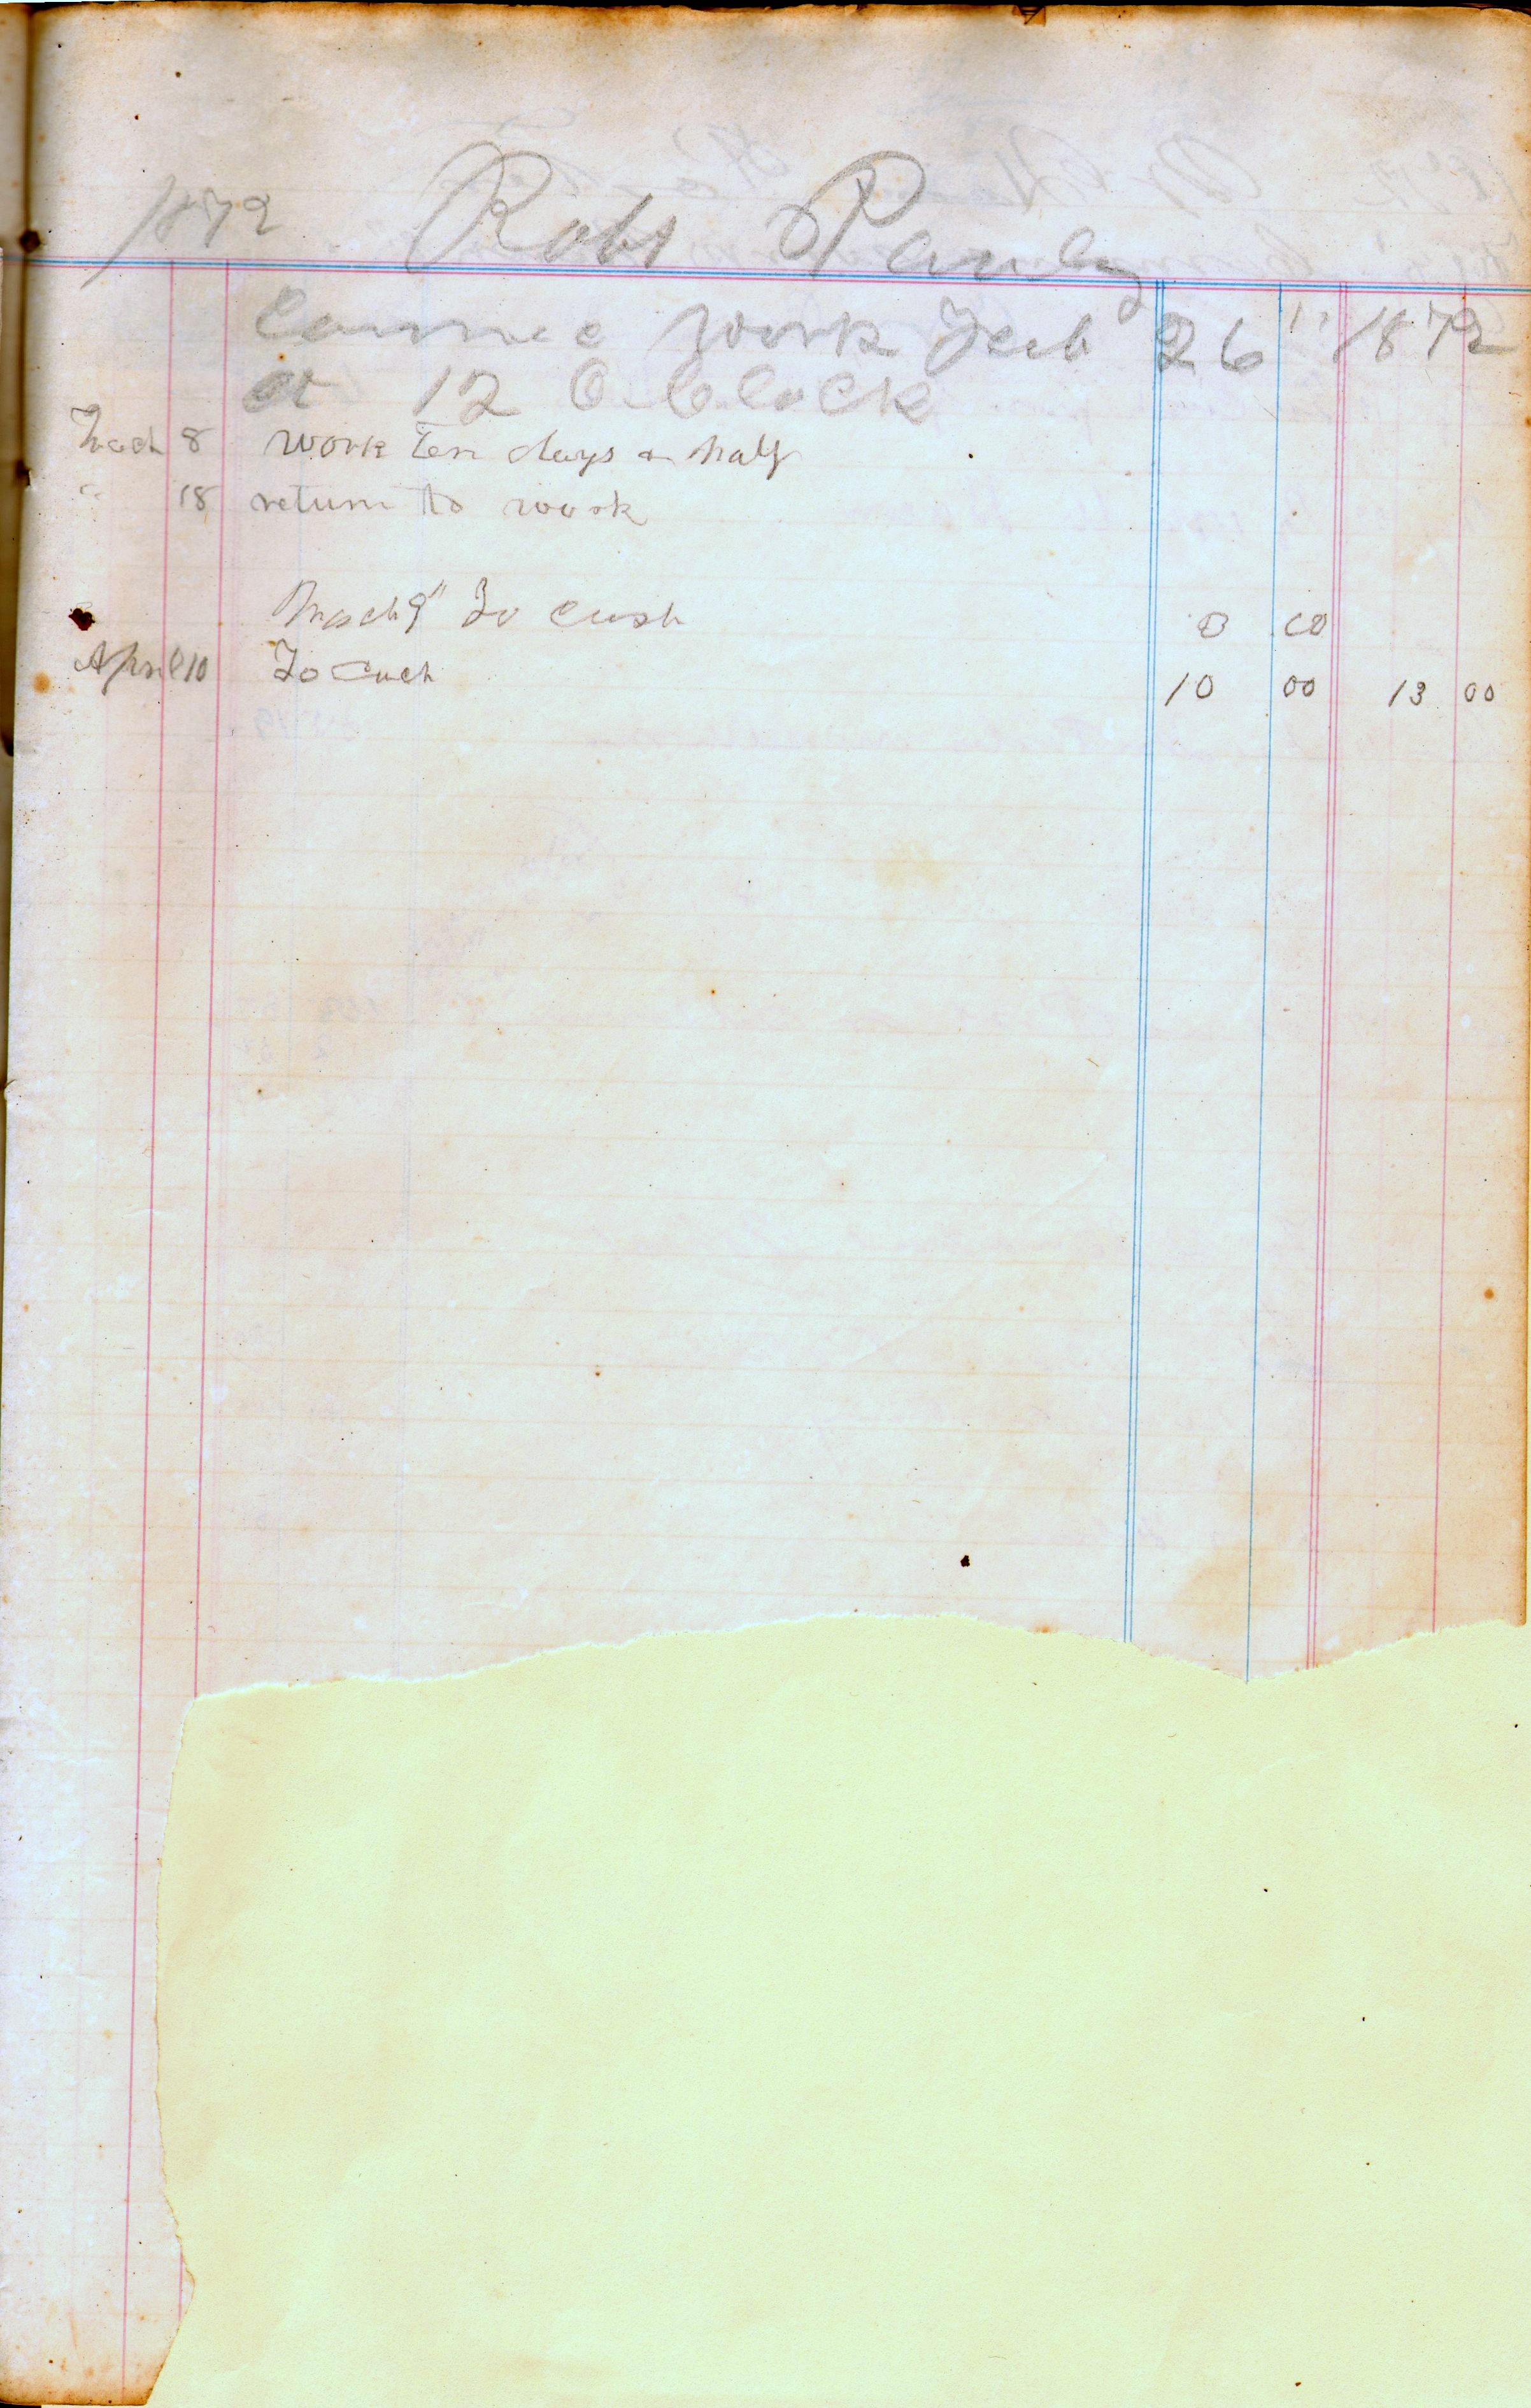 1872 Robt Pauley
Commence work Feb 26" 1872
at 12 O Clock
March 8 work Ten days a half
" 18 return to work
March 9" To Cash 00
April 10 To Cash 10 00 13 00